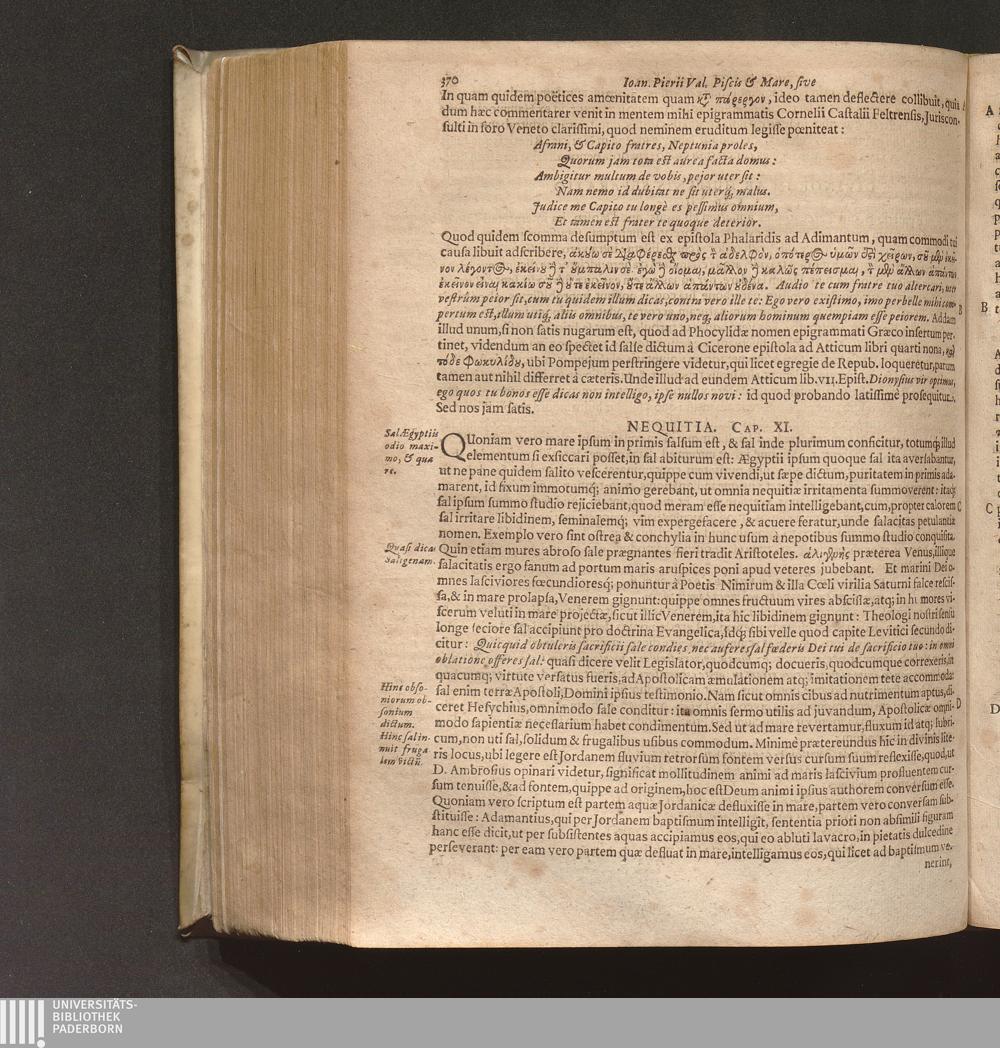 370
Ioan. Pierii Val. Piscis & Mare, sive
In quam quidem poëtices amœnitatem quam κτ̀ πάρεργον, ideo tamen deflectere collibuit, quia
dum hæc commentarer venit in mentem mihi epigrammatis, Cornelii Castalii Feltrensis, Juriscon-
sulti in foro Veneto clarissimi, quod neminem eruditum legisse pœniteat:
Afrani, & Capito fratres, Neptunia proles,
Quorum jam tota est aurea facta domus:
Ambigitur multum de vobis, pejor uter sit:
Nam nemo id dubitat ne sit uterq́; malus.
Judice me Capito tu longè es pessimus omnium,
Et tamen est frater te quoque deterior.
Quod quidem scomma desumptum est ex epistola Phalaridis ad Adimantum, quam commodi tui
causa libuit adscribere, ἀκούω σὲ διαφέρεσθαι πρὸς τ̀ ἀδελφὸν, ὁπότερος ὑμῶν ἐστὶ χείρων, σοῦ μὲν ἐκεῖ-
νον λέγοντος, ἐκείνου ἢ τ᾽ ἔμπαλιν σέ. ἐγὼ ἢ οἶμαι, μᾶλλον ἢ καλῶς πέπεισμαι, τ̀ μὲν ἄλλων ἁπάντων
ἐκεῖνον εἶναι κακίω σοῦ ἢ οὔτε ἐκεῖνον, οὔτε ἄλλων ἁπάντων οὐδένα. Audio te cum fratre tuo altercari, uter
vestrûm peior sit, cum tu quidem illum dicas, contra vero ille te: Ego vero existimo, imo perbelle mihi com-
pertum est, illum utiq́; aliis omnibus, te vero uno, neq́; aliorum hominum quempiam esse peiorem. Addam B
illud unum, si non satis nugarum est, quod ad Phocylidæ nomen epigrammati Græco insertum per-
tinet, videndum an eo spectet id salse dictum à Cicerone epistola ad Atticum libri quarti nona, καὶ
τόδε Φωκυλίδου, ubi Pompejum perstringere videtur, qui licet egregie de Repub. loqueretur, parum
tamen aut nihil differret à cæteris. Unde illud ad eundem Atticum lib. VII. Epist. Dionysius vir optimus,
ego quos tu bonos esse dicas non intelligo, ipse nullos novi: id quod probando latissimè prosequitur.
Sed nos jam satis.
NEQUITIA. CAP. XI.
Sal Ægyptiis
odio maxi-
mo, & qua
re.
QUoniam vero mare ipsum in primis salsum est, & sal inde plurimum conficitur, totumq́; illud
elementum si exsiccari posset, in sal abiturum est: Ægyptii ipsum quoque sal ita aversabantur,
ut ne pane quidem salito vescerentur, quippe cum vivendi, ut sæpe dictum, puritatem in primis ada-
marent, id fixum immotumq́; animo gerebant, ut omnia nequitiæ irritamenta summoverent: itaq́;
sal ipsum summo studio rejiciebant, quod meram esse nequitiam intelligebant, cum, propter calorem C
sal irritare libidinem, seminalemq́; vim expergefacere, & acuere feratur, unde salacitas petulantiæ
nomen. Exemplo vero sint ostrea & conchylia in hunc usum à nepotibus summo studio conquisita.
Quasi dicas
Saligenam.
Quin etiam mures abroso sale prægnantes fieri tradit Aristoteles. ἁλιγενὴς præterea Venus, illique
salacitatis ergo fanum ad portum maris aruspices poni apud veteres jubebant. Et marini Dei o-
mnes lasciviores fœcundioresq́; ponuntur à Poetis Nimirum & illa Cœli virilia Saturni falce rescis-
sa, & in mare prolapsa, Venerem gignunt: quippe omnes fructuum vires abscissæ, atq́; in humores vi-
scerum veluti in mare projectæ, sicut illic Venerem, ita hic libidinem gignunt: Theologi nostri sensu
longe seciore sal accipiunt pro doctrina Evangelica, idq́; sibi velle quod capite Levitici secundo di-
citur: Quicquid obtuleris sacrificii sale condies, nec auferes sal fœderis Dei tui de sacrificio tuo: in omni
oblatione offeres sal: quasi dicere velit Legislator, quodcumq́; docueris, quodcumque correxeris, in
quacumq́; virtute versatus fueris, ad Apostolicam æmulationem atq́; imitationem tete accommoda:
Hinc obso-
niorum ob-
sonium
dictum.
Hinc sal in-
nuit fruga
lem victũ.
sal enim terræ Apostoli, Domini ipsius testimonio. Nam sicut omnis cibus ad nutrimentum aptus, di-
ceret Hesychius, omnimodo sale conditur: ita omnis sermo utilis ad juvandum, Apostolicæ omni- D
modo sapientiæ necessarium habet condimentum. Sed ut ad mare revertamur, fluxum id atq́; lubri-
cum, non uti sal, solidum & frugalibus usibus commodum. Minimè prætereundus hic in divinis lite-
ris locus, ubi legere est Jordanem fluvium retrorsum fontem versus cursum suum reflexisse, quod, ut
D. Ambrosius opinari videtur, significat mollitudinem animi ad maris lascivium profluentem cur-
sum tenuisse, & ad fontem, quippe ad originem, hoc est Deum animi ipsius authorem conversum esse.
Quoniam vero scriptum est partem aquæ Jordanicæ defluxisse in mare, partem vero conversam sub-
stituisse: Adamantius, qui per Jordanem baptismum intelligit, sententia priori non absimili figuram
hanc esse dicit, ut per subsistentes aquas accipiamus eos, qui eo abluti lavacro, in pietatis dulcedine
perseverant: per eam vero partem quæ defluat in mare, intelligamus eos, qui licet ad baptismum ve-
nerint,
A
B
C
D
UNIVERSITÄTS-
BIBLIOTHEK
PADERBORN